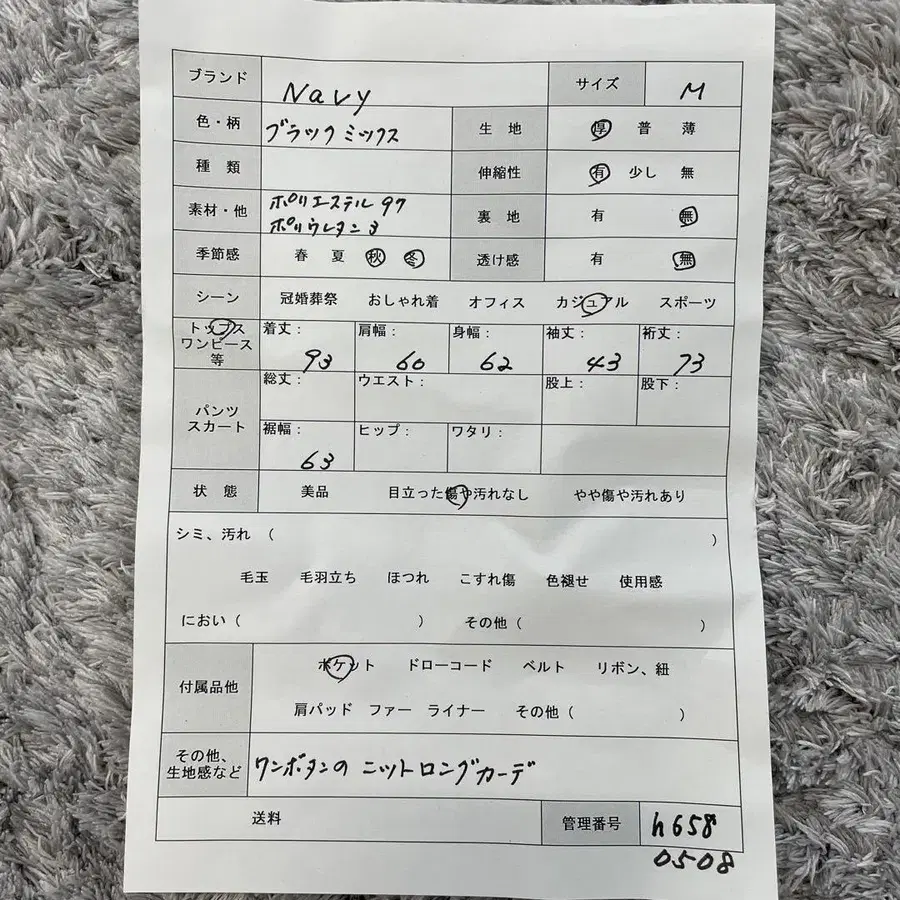 ブランド Navy サイズ M
色・柄 ブラックミックス 生地 厚 普 薄
種類 伸縮性 有 少し 無
素材・他 ポリエステル 97
ポリウレタン 3 裏地 有 無
季節感 春 夏 秋 冬 透け感 有 無
シーン 冠婚葬祭 おしゃれ着 オフィス カジュアル スポーツ
トップス
ワンピース
等 着丈: 93 肩幅: 60 身幅: 62 袖丈: 43 裄丈: 73
パンツ
スカート 総丈: ウエスト: 股上: 股下:
裾幅: 63 ヒップ: ワタリ:
状態 美品 目立った傷や汚れなし やや傷や汚れあり
シミ、汚れ ( )
毛玉 毛羽立ち ほつれ こすれ傷 色褪せ 使用感
におい ( ) その他 ( )
付属品他 ポケット ドローコード ベルト リボン、紐
肩パッド ファー ライナー その他 ( )
その他、
生地感など ワンボタンの ニットロングカーデ
送料 管理番号 h658
0508